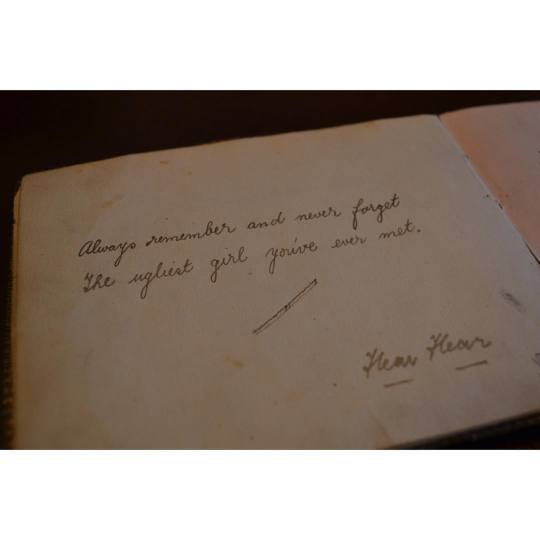 Always remember and never forget
The ugliest girl you've ever met.
Hear Hear